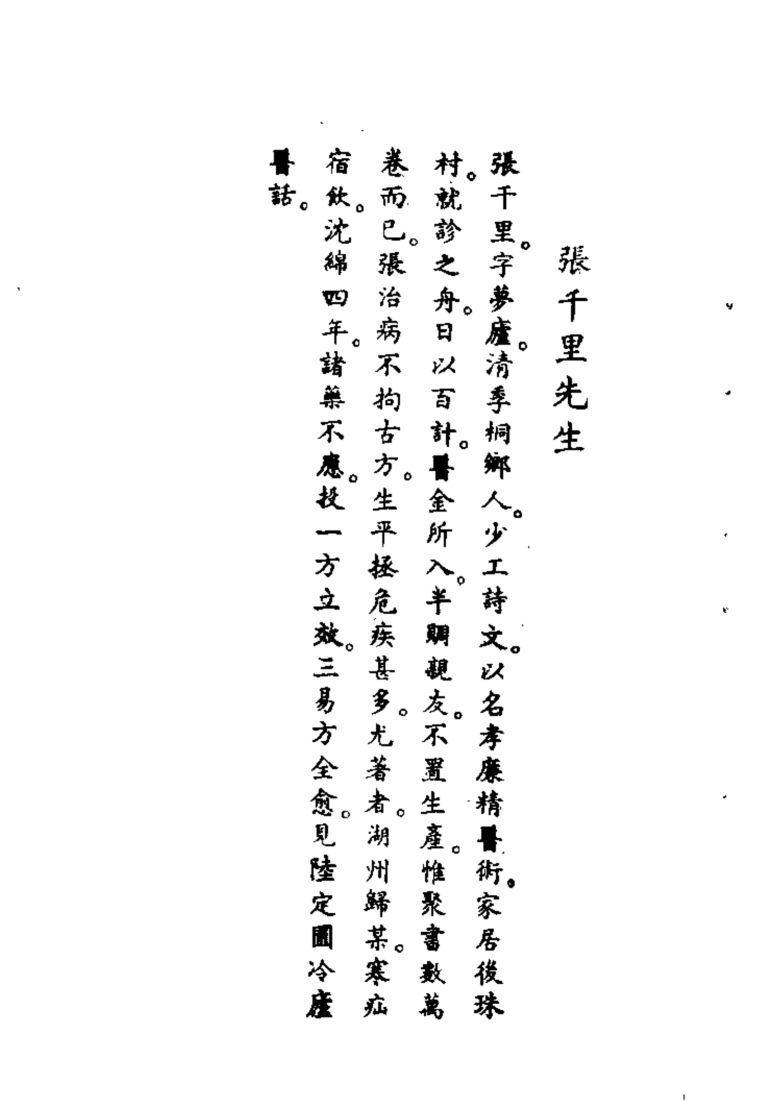 張千里先生
張千里。字夢廬。清季桐鄉人。少工詩文。以名孝廉精醫術。家居後珠
村。就診之舟。日以百計。醫金所入。半賙親友。不置生產。惟聚書數萬
卷而已。張治病不拘古方。生平拯危疾甚多。尤著者。湖州歸某。寒疝
宿飲。沈綿四年。諸藥不應。投一方立效。三易方全愈。見陸定圃冷廬
醫話。